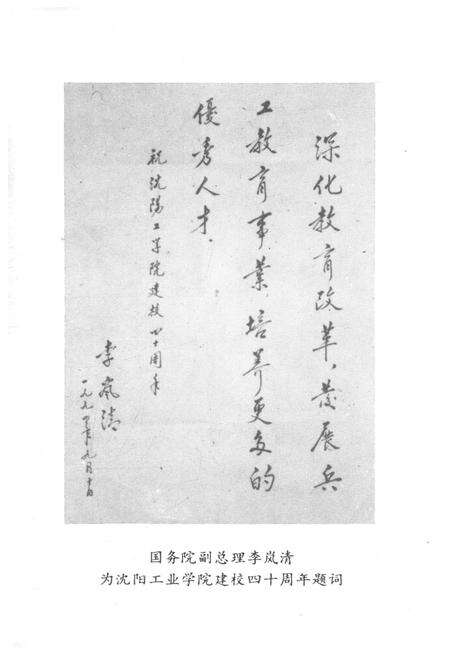 深化教育改革，发展兵
工教育事業，培养更多的
優秀人才。
祝沈陽工業学院建校四十周年
李嵐清
一九九
年九月十日
国务院副总理李岚清
为沈阳工业学院建校四十周年题词